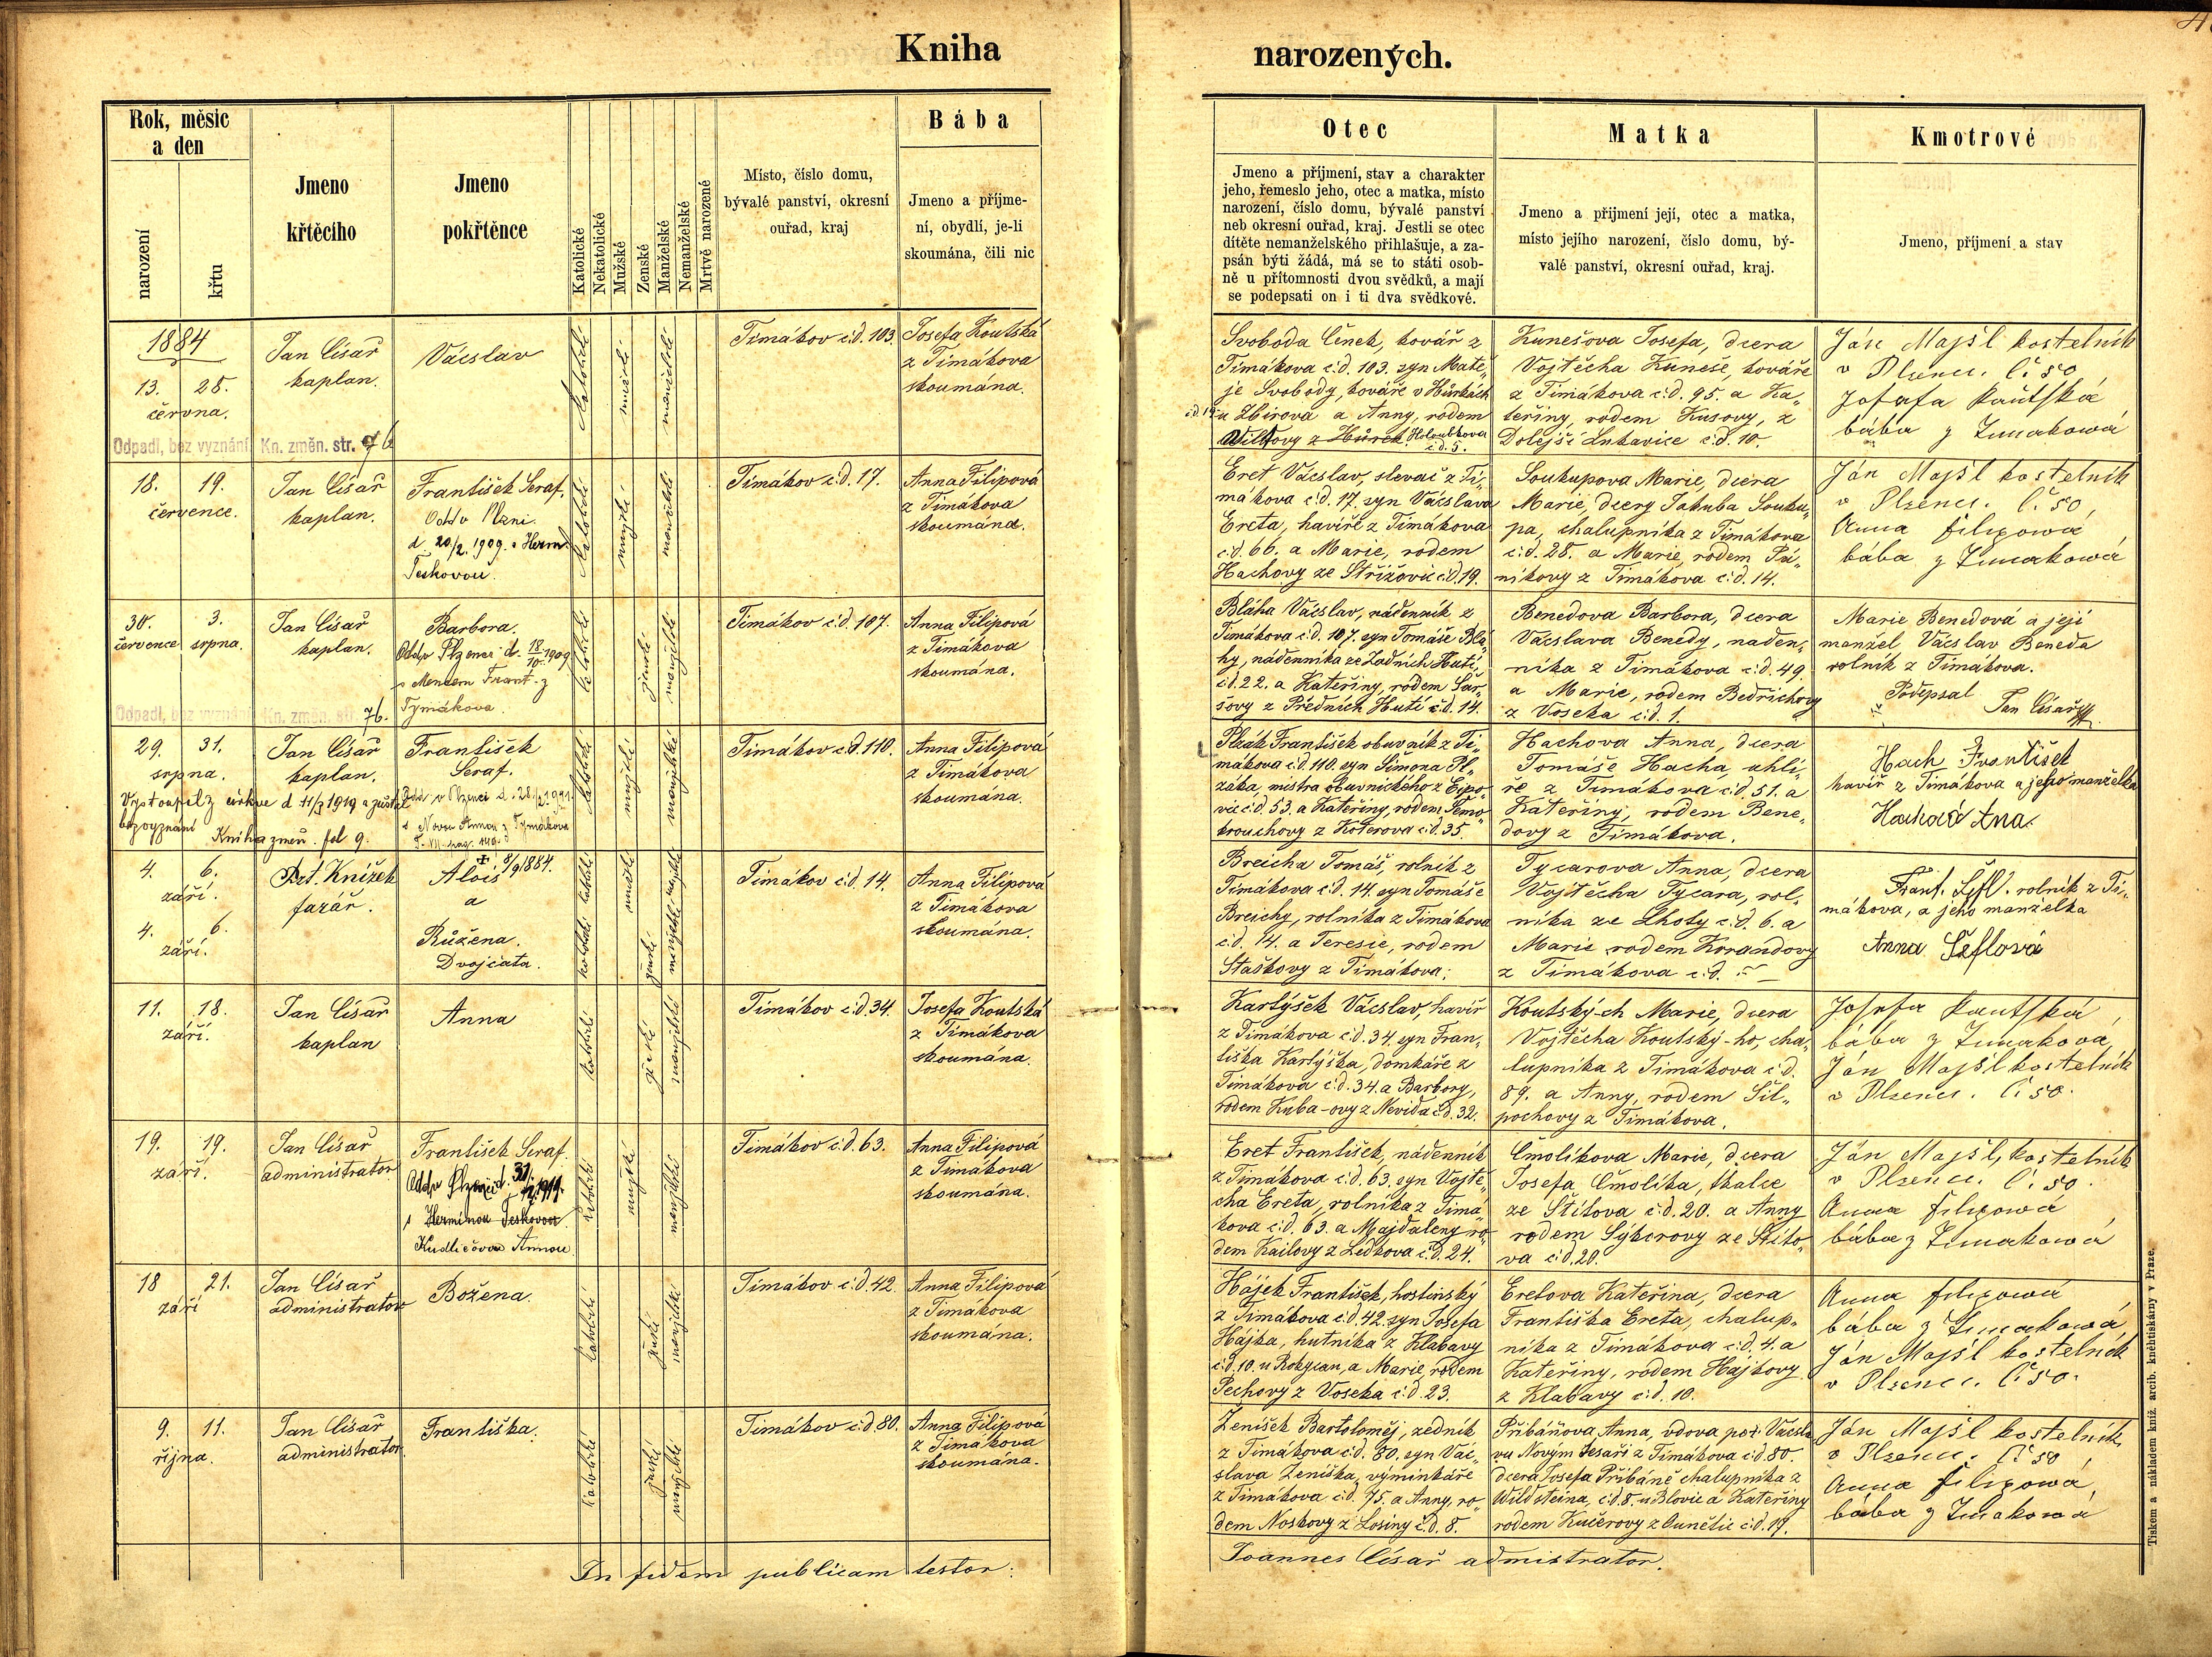 Kniha
narozených.
Rok, měsíc
a den
narození
křtu
Jmeno
křtěcího
Jmeno
pokřtěnce
Katolické
Nekatolické
Mužské
Ženské
Manželské
Nemanželské
Mrtvě narozené
Místo, číslo domu,
bývalé panství, okresní
ouřad, kraj
Bába
Jmeno a příjme-
ní, obydlí, je-li
skoumána, čili nic
Otec
Jmeno a příjmení, stav a charakter
jeho, řemeslo jeho, otec a matka, místo
narození, číslo domu, bývalé panství
neb okresní ouřad, kraj. Jestli se otec
dítěte nemanželského přihlašuje, a za-
psán býti žádá, má se to státi osob-
ně u přítomnosti dvou svědků, a mají
se podepsati on i ti dva svědkové.
Matka
Jmeno a přijmení její, otec a matka,
místo jejího narození, číslo domu, bý-
valé panství, okresní ouřad, kraj.
Kmotrové
Jmeno, příjmení a stav
1884
13. 28.
června.
Odpadl, bez vyznání Kn. změn. str. 76
Jan Císař
kaplan.
Václav
katolické
mužské
manželské
Timákov č:d. 103.
Josefa Koutská
z Timákova
skoumána.
Svoboda Čeněk, kovář z
Timákova č:d. 103. syn Matě„
je Svobody, kováře v Hůrkách
č.d. 19. u Zbirova a Anny, rodem
Wiltovy z Hůrek. Holoubkova
č.d. 5.
Kunešova Josefa, dcera
Vojtěcha Kuneše, kováře
z Timákova č:d. 95. a Ka„
teřiny, rodem Kusovy, z
Dolejší Lukavice č:d. 10.
Ján Majšl kostelník
v Plzenci. č: 50
Josefa Kautská
bába z Timakowa
18. 19.
července.
Jan Císař
kaplan.
František Seraf.
Odd. v Plzni
d. 20/2. 1909. s Herm.
Teskovou.
katolické
mužské
manželské
Timákov č:d. 17.
Anna Filipová
z Timákova
skoumána.
Eret Vácslav, slevač z Ti„
mákova č:d. 17. syn Vácslava
Ereta, havíře z Timákova
č:d. 66. a Marie, rodem
Hachovy ze Střížovic č:d. 19.
Soukupova Marie, dcera
Marie, dcery Jakuba Souku„
pa, chalupníka z Timákova
č:d. 28. a Marie, rodem Pá„
níkovy z Timákova č:d. 14.
Ján Majšl kostelník
v Plzenci. č: 50
Anna filipowá
bába z Timakowá
30. 3.
července srpna.
Odpadl, bez vyznání Kn. změn. str. 76.
Jan Císař
kaplan.
Barbora.
Odd. v Plzenci d. 18/10. 1909
s Menclem Frant. z
Tymákova.
katolické
ženské
manželské
Timákov č:d. 107.
Anna Filipová
z Timákova
skoumána.
Bláha Vácslav, nádenník z
Timákova č:d. 107. syn Tomáše Blá„
hy, nádenníka ze Zadních Hutí,
č:d. 22. a Kateřiny, rodem Šar„
sovy z Předních Hutí č:d. 14.
Benedova Barbora, dcera
Vácslava Benedy, náden„
níka z Timákova č:d. 49
a Marie, rodem Bedřichovy
z Voseka č:d. 1.
Marie Benedová a její
manžel Václav Beneda
rolník z Timákova.
Podepsal
Jan Císař
29. 31.
srpna.
Vystoupil z církve d 11/3 1919 a zůstal
bezvyznání Kniha změn. fol 9.
Jan Císař
kaplan.
František
Seraf.
Odd. v Plzenci d. 28/2. 1911
s Novou Annou z Tymákova
katolické
mužské
manželské
Timákov č:d. 110.
Anna Filipová
z Timákova
skoumána.
Plzák František obuvník z Ti„
mákova č:d. 110. syn Šimona Pl„
záka, mistra obuvnického z Ejpo„
vic č:d. 53. a Kateřiny, rodem Temo„
trouchovy z Koterova č:d. 35.
Hachova Anna, dcera
Tomáše Hacha, uhlí„
ře z Timákova č:d. 51. a
Kateřiny, rodem Bene„
dovy z Timákova.
Hach František
havíř z Timákova a jeho manželka
Hachová Ana.
4. 6.
září.
4. 6.
září.
Ant. Knížek
farář.
Alois ✝ 8/9 1884.
a
Růžena.
Dvojčata.
katolické
mužské
manželské
katolické
ženské
manželské
Timákov č:d. 14.
Anna Filipová
z Timákova
skoumána.
Brejcha Tomáš, rolník z
Timákova č:d. 14. syn Tomáše
Brejchy, rolníka z Timákova
č:d. 14. a Teresie, rodem
Staškovy z Timákova.
Tycarova Anna, dcera
Vojtěcha Tycara, rol„
níka ze Lhoty č:d. 6. a
Marie rodem Korandovy
z Timákova č:d. –
Frant. Šefl. rolník z Ti„
mákova, a jeho manželka
Anna Šeflová
11. 18.
září.
Jan Císař
kaplan
Anna
katolické
ženské
manželské
Timákov č:d. 34.
Josefa Koutská
z Timákova
skoumána.
Kartýšek Vácslav, havíř
z Timákova č:d. 34. syn Fran„
tiška Kartýška, domkáře z
Timákova č:d. 34. a Barbory,
rodem Kuba-ovy z Nevida č:d. 32.
Koutský-ch Marie, dcera
Vojtěcha Koutský-ho, cha„
lupníka z Timákova č:d.
89. a Anny, rodem Šil„
pochovy z Timákova.
Josefa Kautská
bába z Timakova,
Ján Majšl kostelník
v Plzenci. č: 50.
19. 19.
září.
Jan Císař
administrator
František Seraf.
Odd. v Plzenci d. 31/1. 1911.
s Herminou Teskovou.
Kudličovou Annou
katolické
mužské
manželské
Timákov č:d. 63.
Anna Filipová
z Timákova
skoumána.
Eret František, nádenník
z Timákova č:d. 63. syn Vojtě„
cha Ereta, rolníka z Timá„
kova č:d. 63. a Majdaleny ro„
dem Kailovy z Ledkova č:d. 24.
Čmolíkova Marie, dcera
Josefa Čmolíka, tkalce
ze Štítova č:d. 20. a Anny
rodem Sýkorovy ze Štíto„
va č:d. 20.
Ján Majšl, kostelník
v Plzenci. č: 50.
Anna filipowá
bába z Timakowá
18 21.
září
Jan Císař
administrator
Božena.
katolické
ženské
manželské
Timákov č:d. 42.
Anna Filipová
z Timákova
skoumána.
Hájek František, hostinský
z Timákova č:d. 42. syn Josefa
Hájka, hutníka z Klabavy
č:d. 10. u Rokycan, a Marie, rodem
Pechovy z Voseka č:d. 23.
Eretova Kateřina, dcera
Františka Ereta, chalup„
níka z Timákova č:d. 4. a
Kateřiny, rodem Hájkovy
z Klabavy č:d. 10.
Anna filipowá
bába z Timakowá
Ján Majšl kostelník
v Plzenci. č: 50.
9. 11.
října.
Jan Císař
administrator.
Františka.
katolické
ženské
manželské
Timákov č:d 80.
Anna Filipová
z Timákova
skoumána.
Ženíšek Bartoloměj, zedník
z Timákova č:d. 80. syn Vác„
slava Ženíška, výminkáře
z Timákova č:d. 75. a Anny, ro„
dem Noskovy z Losiny č:d. 8.
Přibáňova Anna, vdova po Václa
vu Novým tesaři z Timákova č:d. 80.
dcera Josefa Přibáně chalupníka z
Wildsteina, č:d. 8. u Blovic a Kateřiny
rodem Kučerovy z Čunětic č:d. 19.
Ján Majšl kostelník
v Plzenci. č: 50
Anna filipowá,
bába z Timakowá
In fidem publicam testor:
Joannes Císař admistrator.
Tiskem a nákladem kníž. arcib. knéhtiskárny v Praze.